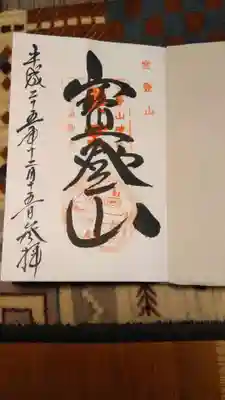 宝登山
寳登山
平成二十五年十二月十五日参拝